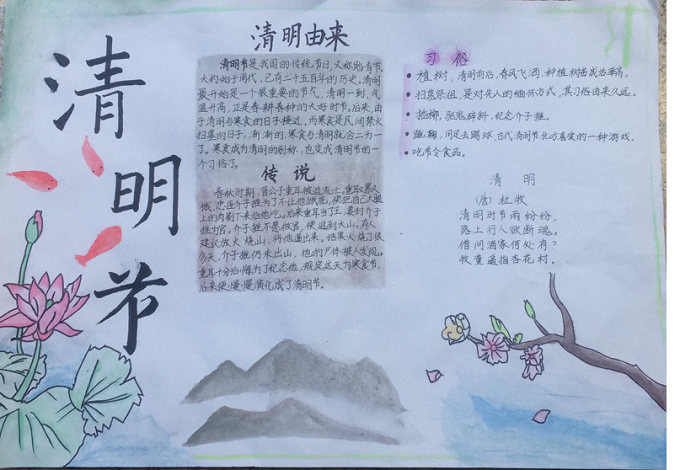 清明节
清明由来
清明节是我国的传统节日,又称踏青节,
大约始于周代,已有二千五百年的历史。清明
最开始是一个很重要的节气,清明一到,气
温升高,正是春耕春种的大好时节,后来,由
于清明与寒食的日子接近,而寒食是民间禁火
扫墓的日子,渐渐的,寒食与清明就合二为一
了。寒食成为清明的别称,也变成清明节的一
个习俗了。
传说
春秋时期,晋公子重耳被迫流亡,重耳又
饿,忠臣介子推为了不让他饿死,便把自己大腿
上的肉割下来给他吃。后来重耳当了王要封介子
推为官,介子推不愿做官,便逃到大山。有人
建议放火烧山,将他逼出来,结果火烧了很
多天,介子推仍未出山,他的尸体被人发现。
重耳十分后悔为了纪念他,规定这天为寒食节,
后来便慢慢演化成了清明节。
习俗
植树,清明前后,春风飞洒,种植树苗成活率高。
扫墓祭祖,是对先人的缅怀方式,其习俗由来久远。
插柳,驱鬼辟邪,纪念介子推。
蹴鞠,用足去踢球,古代清明节北方喜爱的一种游戏。
吃节令食品。
清明
(唐)杜牧
清明时节雨纷纷,
路上行人欲断魂。
借问酒家何处有?
牧童遥指杏花村。